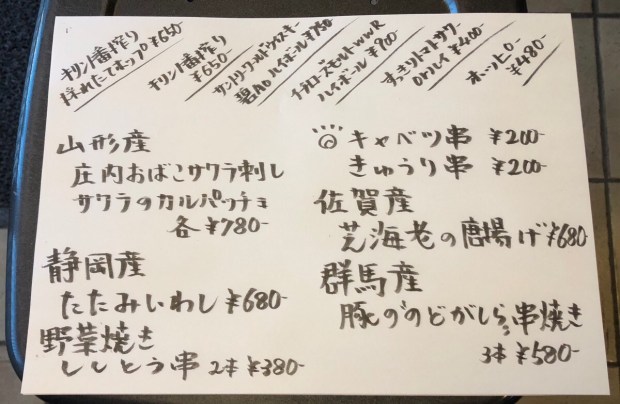 キリン一番搾り
採れたてホップ ¥650
キリン一番搾り
¥650-
サントリーワールドウイスキー
碧Ao ハイボール ¥750
チチブローズモルトWWR
ハイボール ¥900
すっきりトマトサワー
orハイ ¥400-
ホッピー
¥480-
山形産
庄内おばこサワラ刺し
サワラのカルパッチョ
各 ¥780-
静岡産
たたみいわし ¥680-
野菜焼き
ししとう串 2本 ¥380-
キャベツ串 ¥200-
きゅうり串 ¥200-
佐賀産
芝海老の唐揚げ ¥680
群馬産
豚ののどがしら串焼き
3本 ¥580-